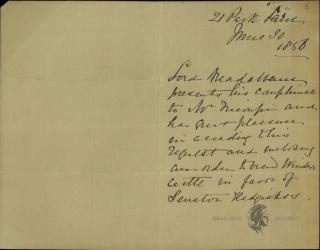 21 Park Lane
June 30
1886
Lord
presents his compliments
to Mr and
has great pleasure
in acceding to his
request and enclosing
an order to view Windsor
Castle in favor of
Senator